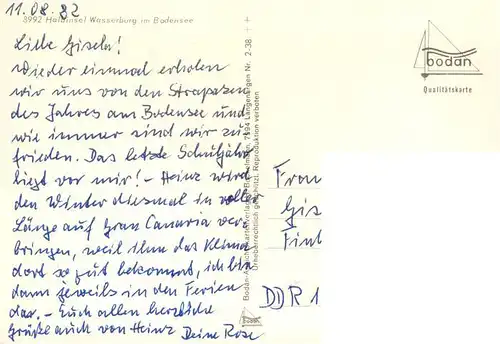 11.08.82
8992 Halbinsel Wasserburg im Bodensee
Liebe Gisela!
Wieder einmal erholen
wir uns von den Strapazen
des Jahres am Bodensee und
wie immer sind wir zu
frieden. Das letzte Schuljahr
liegt vor mir! - Heinz wird
den Winter diesmal in voller
Länge auf Gran Canaria ver-
bringen, weil ihm das Klima
dort so gut bekommt, ich bin
dann jeweils in den Ferien
da. - Euch allen herzliche
Grüße auch von Heinz Deine Rose
Bodan-Ansichtskartenverlag 7994 Langenargen Nr. 2-38
Urheberrechtlich geschützt, Reproduktion verboten
bodan
bodan
Qualitätskarte
Frau
Gis
DDR 1